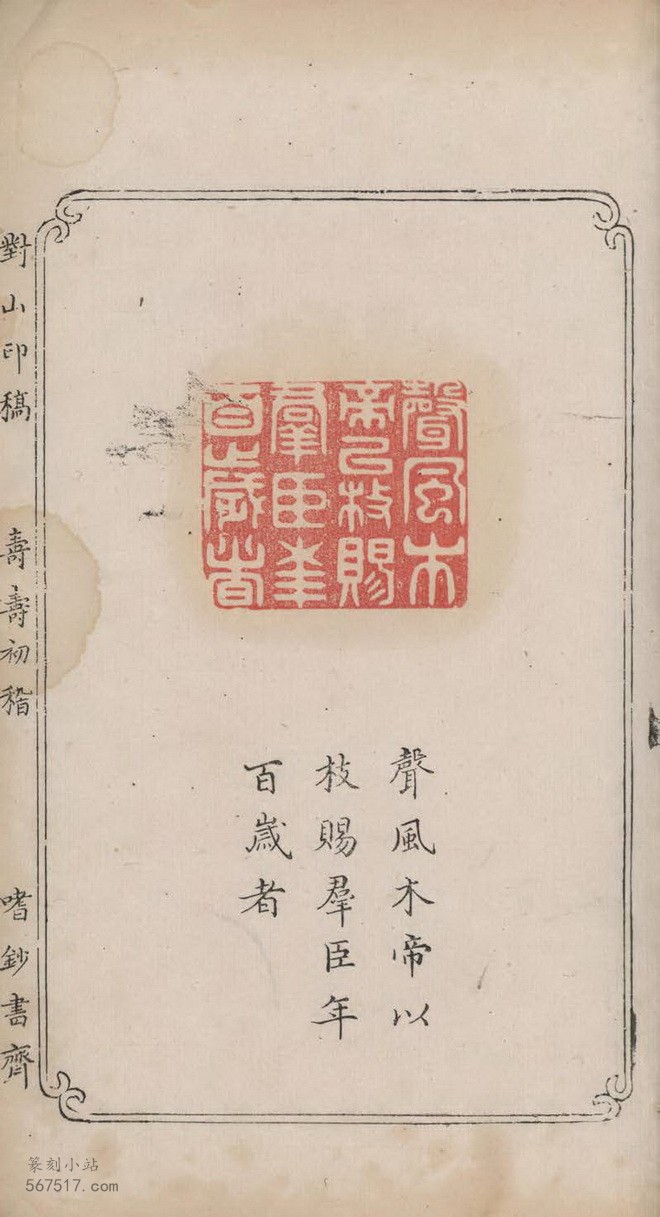 聲風木
帝以枝賜
羣臣年
百歲者
聲風木帝以
枝賜羣臣年
百歲者
對山印稿
壽壽初稽
嗜鈔書齋
篆刻小站
567517.com